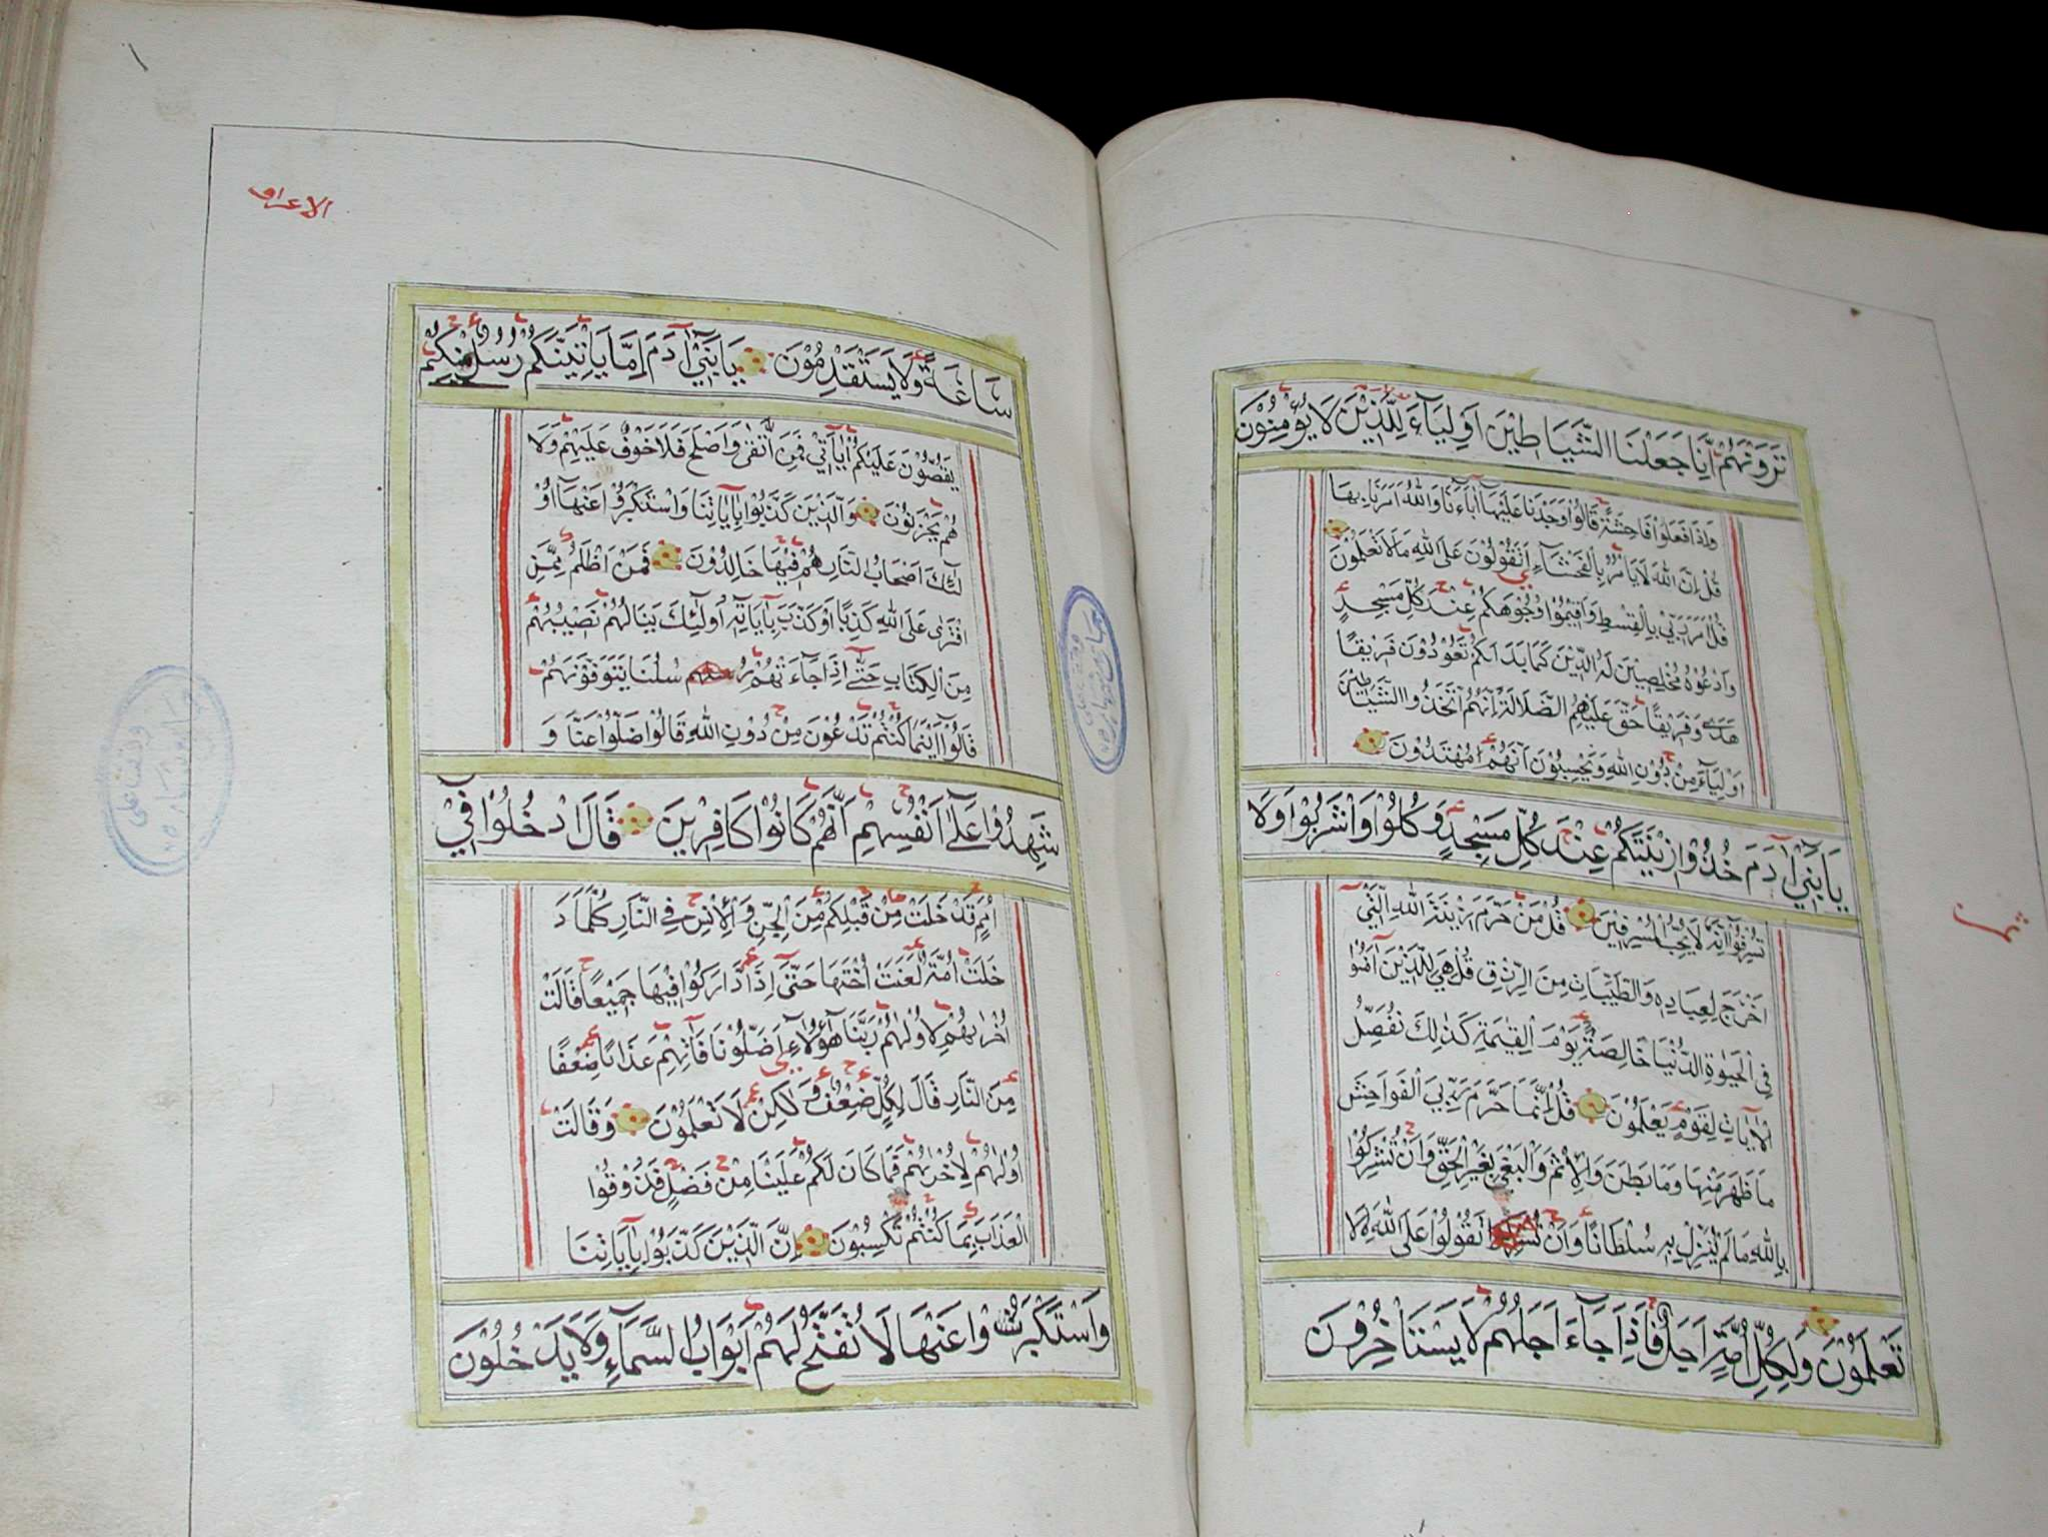 تَرَوْنَهُمْ اِنَّا جَعَلْنَا الشَّيَاطِيْنَ اَوْلِيَآءَ لِلَّذِيْنَ لَا يُؤْمِنُوْنَ
وَاِذَا فَعَلُوْا فَاحِشَةً قَالُوْا وَجَدْنَا عَلَيْهَآ اٰبَآءَنَا وَاللّٰهُ اَمَرَنَا بِهَا
قُلْ اِنَّ اللّٰهَ لَا يَاْمُرُ بِالْفَحْشَآءِ اَتَقُوْلُوْنَ عَلَى اللّٰهِ مَا لَا تَعْلَمُوْنَ
قُلْ اَمَرَ رَبِّيْ بِالْقِسْطِ وَاَقِيْمُوْا وُجُوْهَكُمْ عِنْدَ كُلِّ مَسْجِدٍ
وَادْعُوْهُ مُخْلِصِيْنَ لَهُ الدِّيْنَ كَمَا بَدَاَكُمْ تَعُوْدُوْنَ فَرِيْقًا
هَدٰى وَفَرِيْقًا حَقَّ عَلَيْهِمُ الضَّلَالَةُ اِنَّهُمُ اتَّخَذُوا الشَّيَاطِيْنَ
اَوْلِيَآءَ مِنْ دُوْنِ اللّٰهِ وَيَحْسَبُوْنَ اَنَّهُمْ مُهْتَدُوْنَ
يَا بَنِيْٓ اٰدَمَ خُذُوْا زِيْنَتَكُمْ عِنْدَ كُلِّ مَسْجِدٍ وَكُلُوْا وَاشْرَبُوْا وَلَا
تُسْرِفُوْا اِنَّهُ لَا يُحِبُّ الْمُسْرِفِيْنَ قُلْ مَنْ حَرَّمَ زِيْنَةَ اللّٰهِ الَّتِيْٓ
اَخْرَجَ لِعِبَادِهِ وَالطَّيِّبَاتِ مِنَ الرِّزْقِ قُلْ هِيَ لِلَّذِيْنَ اٰمَنُوْا
فِى الْحَيٰوةِ الدُّنْيَا خَالِصَةً يَوْمَ الْقِيٰمَةِ كَذٰلِكَ نُفَصِّلُ
الْاٰيَاتِ لِقَوْمٍ يَعْلَمُوْنَ قُلْ اِنَّمَا حَرَّمَ رَبِّيَ الْفَوَاحِشَ
مَا ظَهَرَ مِنْهَا وَمَا بَطَنَ وَالْاِثْمَ وَالْبَغْيَ بِغَيْرِ الْحَقِّ وَاَنْ تُشْرِكُوْا
بِاللّٰهِ مَا لَمْ يُنَزِّلْ بِهِ سُلْطَانًا وَاَنْ تَقُوْلُوْا عَلَى اللّٰهِ مَا لَا
تَعْلَمُوْنَ وَلِكُلِّ اُمَّةٍ اَجَلٌ فَاِذَا جَآءَ اَجَلُهُمْ لَا يَسْتَاْخِرُوْنَ
الاعراف
سَاعَةً وَلَا يَسْتَقْدِمُوْنَ يَا بَنِيْٓ اٰدَمَ اِمَّا يَاْتِيَنَّكُمْ رُسُلٌ مِنْكُمْ
يَقُصُّوْنَ عَلَيْكُمْ اٰيَاتِيْ فَمَنِ اتَّقٰى وَاَصْلَحَ فَلَا خَوْفٌ عَلَيْهِمْ وَلَا
هُمْ يَحْزَنُوْنَ وَالَّذِيْنَ كَذَّبُوْا بِاٰيَاتِنَا وَاسْتَكْبَرُوْا عَنْهَآ اُوْ
لٰٓئِكَ اَصْحَابُ النَّارِ هُمْ فِيْهَا خَالِدُوْنَ فَمَنْ اَظْلَمُ مِمَّنِ
افْتَرٰى عَلَى اللّٰهِ كَذِبًا اَوْ كَذَّبَ بِاٰيَاتِهِ اُولٰٓئِكَ يَنَالُهُمْ نَصِيْبُهُمْ
مِنَ الْكِتَابِ حَتّٰٓى اِذَا جَآءَتْهُمْ رُسُلُنَا يَتَوَفَّوْنَهُمْ
قَالُوْٓا اَيْنَمَا كُنْتُمْ تَدْعُوْنَ مِنْ دُوْنِ اللّٰهِ قَالُوْا ضَلُّوْا عَنَّا وَ
شَهِدُوْا عَلٰٓى اَنْفُسِهِمْ اَنَّهُمْ كَانُوْا كَافِرِيْنَ قَالَ ادْخُلُوْا فِيْٓ
اُمَمٍ قَدْ خَلَتْ مِنْ قَبْلِكُمْ مِنَ الْجِنِّ وَالْاِنْسِ فِى النَّارِ كُلَّمَا دَ
خَلَتْ اُمَّةٌ لَعَنَتْ اُخْتَهَا حَتّٰٓى اِذَا ادَّارَكُوْا فِيْهَا جَمِيْعًا قَالَتْ
اُخْرٰيهُمْ لِاُوْلٰيهُمْ رَبَّنَا هٰٓؤُلَآءِ اَضَلُّوْنَا فَاٰتِهِمْ عَذَابًا ضِعْفًا
مِنَ النَّارِ قَالَ لِكُلٍّ ضِعْفٌ وَلٰكِنْ لَا تَعْلَمُوْنَ وَقَالَتْ
اُوْلٰيهُمْ لِاُخْرٰيهُمْ فَمَا كَانَ لَكُمْ عَلَيْنَا مِنْ فَضْلٍ فَذُوْقُوْا
الْعَذَابَ بِمَا كُنْتُمْ تَكْسِبُوْنَ اِنَّ الَّذِيْنَ كَذَّبُوْا بِاٰيَاتِنَا
وَاسْتَكْبَرُوْا عَنْهَا لَا تُفَتَّحُ لَهُمْ اَبْوَابُ السَّمَآءِ وَلَا يَدْخُلُوْنَ